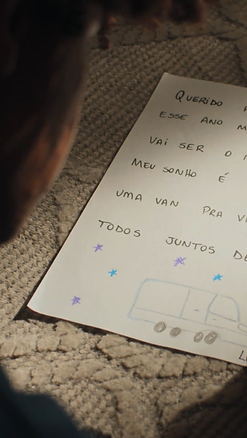 QUERIDO
ESSE ANO
VAI SER O
MEU SONHO É
UMA VAN PRA
TODOS JUNTOS